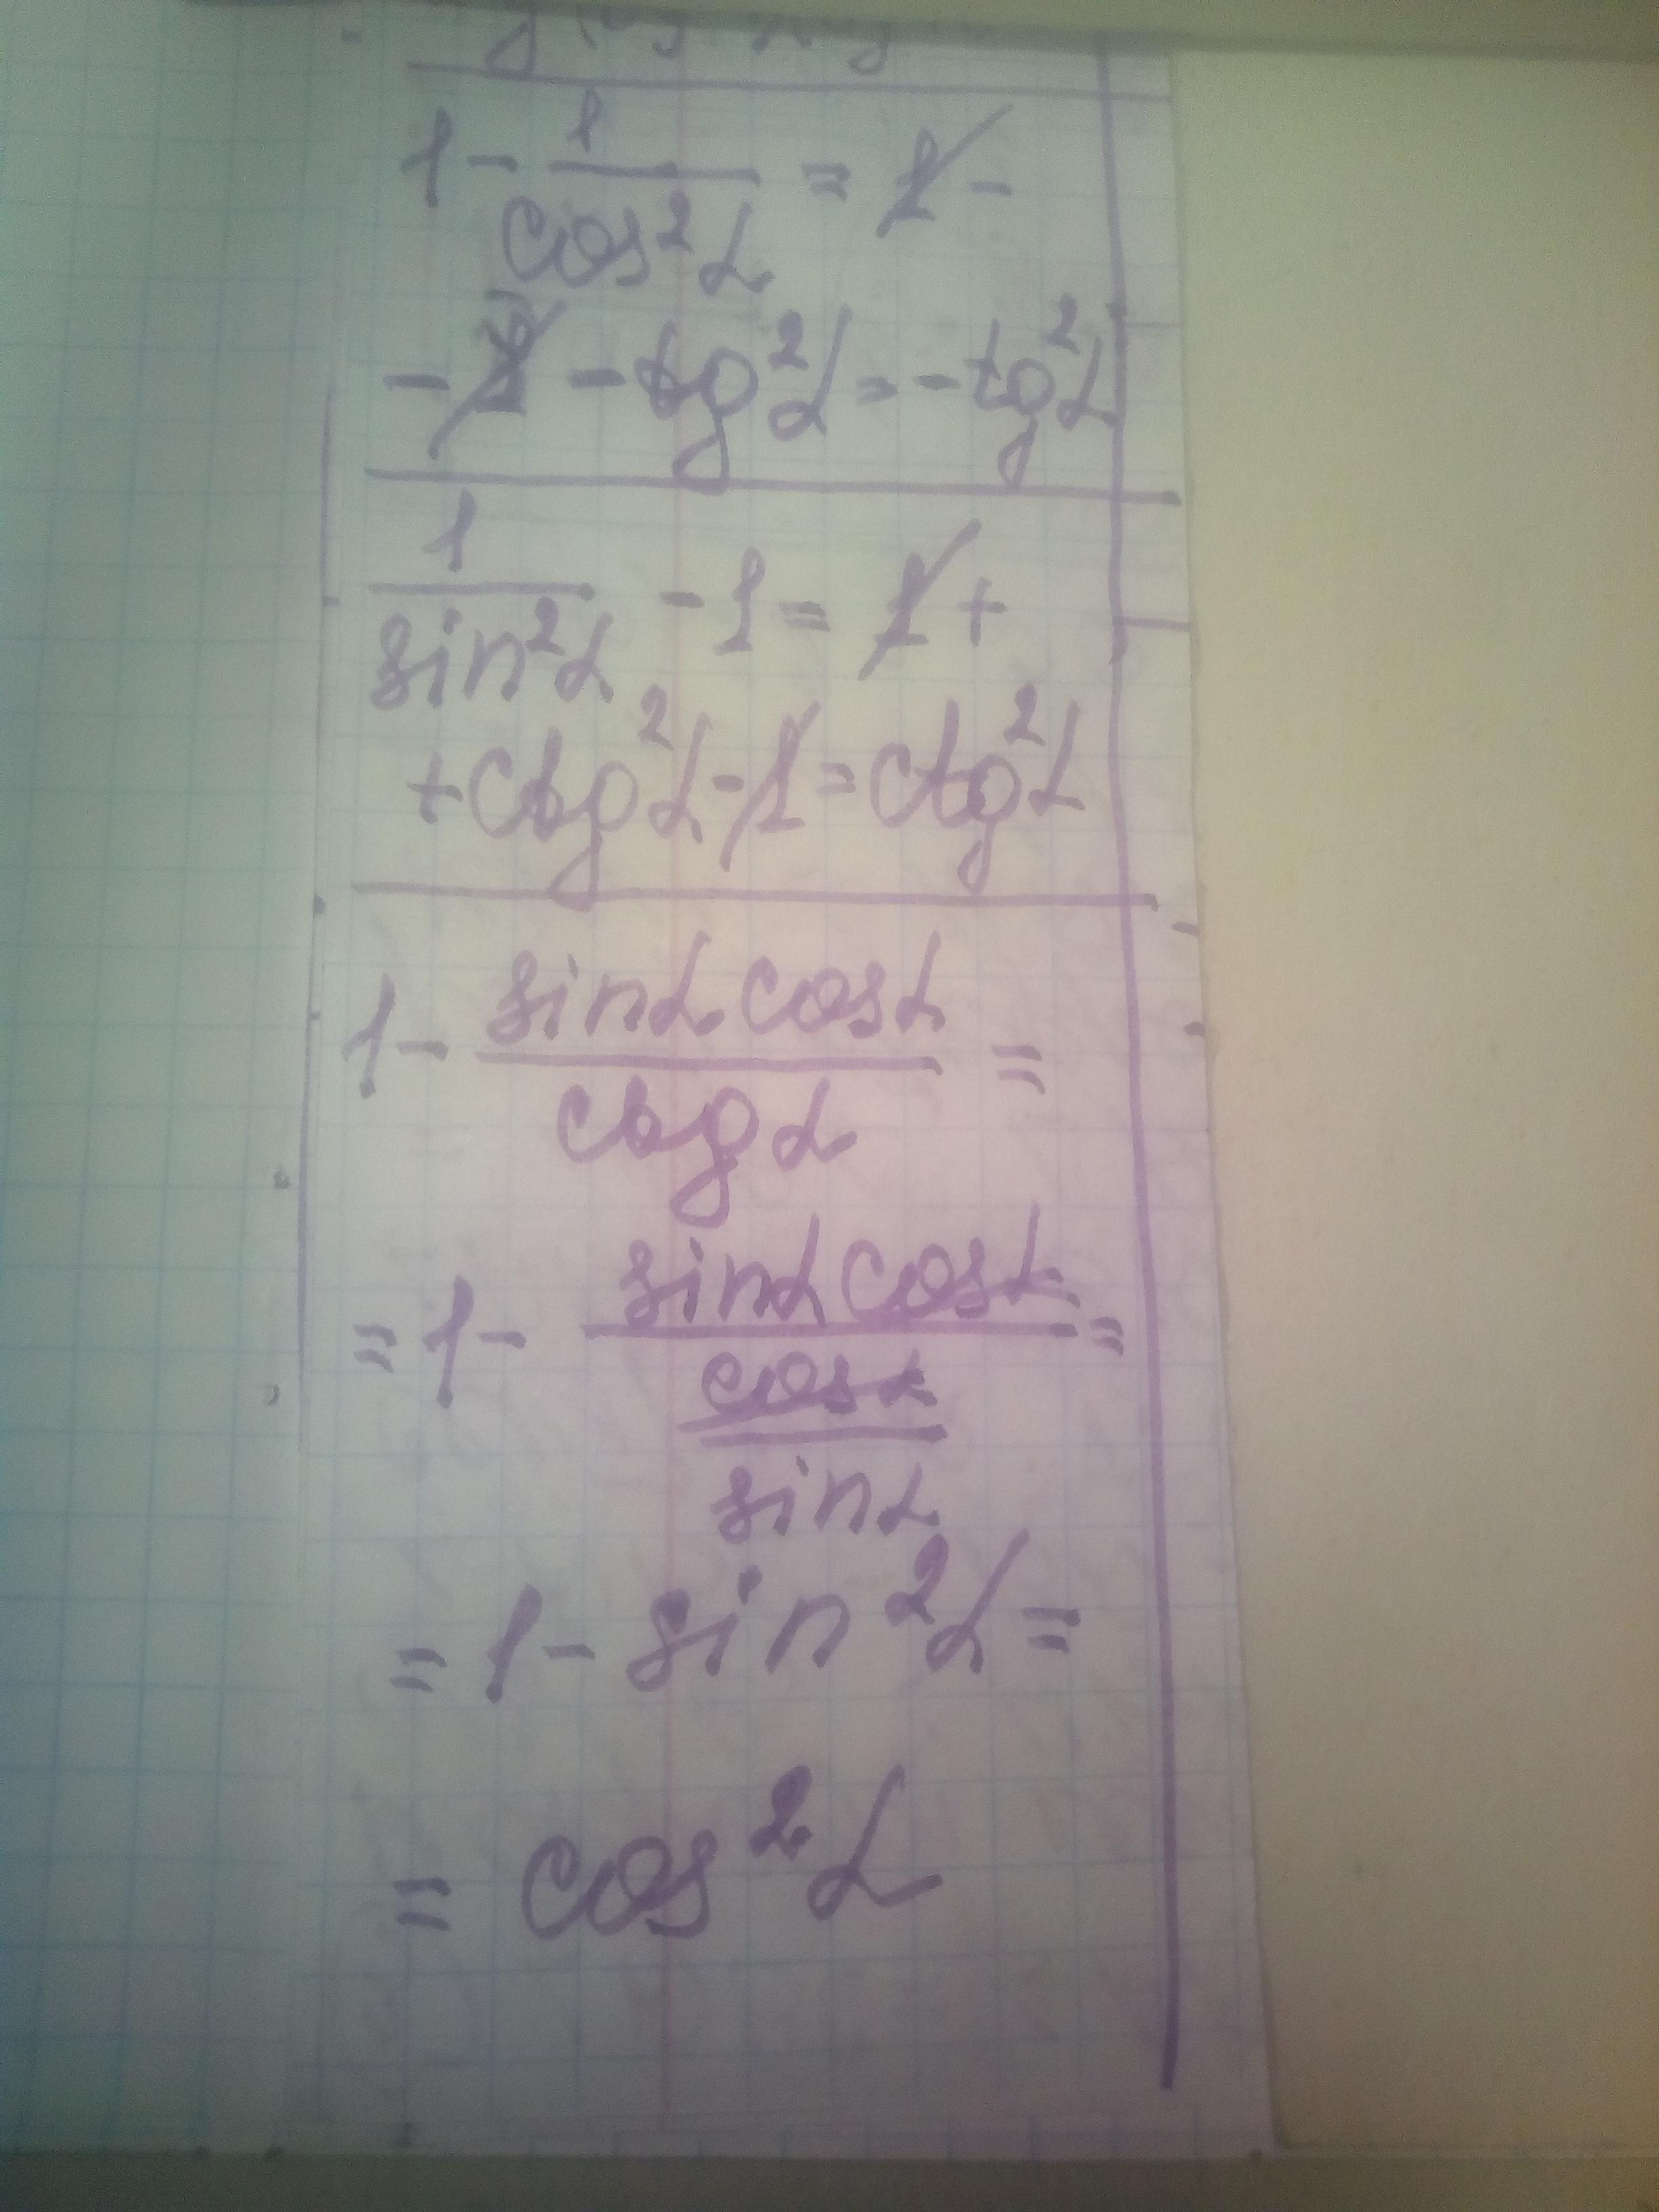 1 - 1/cos²α = 1 -
- 1 - tg²α = - tg²α
1/sin²α - 1 = 1 +
+ ctg²α - 1 = ctg²α
1 - sinα cosα/ctgα =
= 1 - sinα cosα/(cosα/sinα) =
= 1 - sin²α =
= cos²α